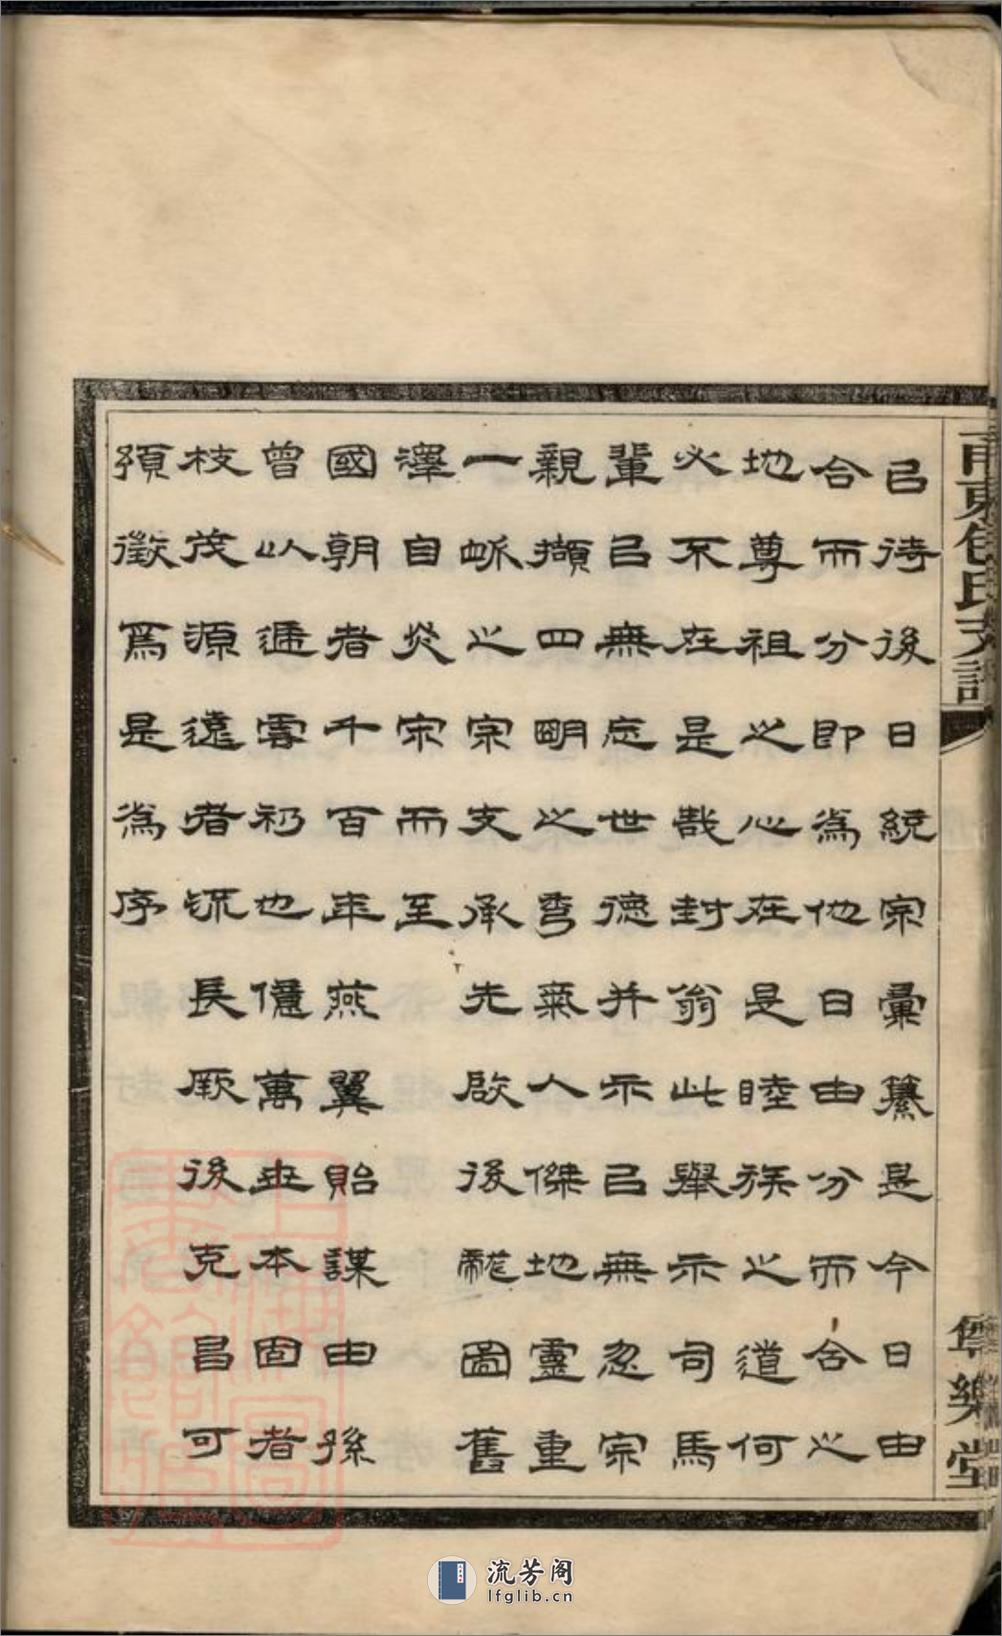 甬東包氏支譜
樂堂
㠯待後日統宗彙纂是今日由
合而分即為他日由分而合之
地尊祖之心在是睦族之道何
必不在是哉封翁此舉示司馬
輩㠯無忘世德并示㠯無忽宗
親擷四明之秀氣人傑地靈重
一脈之宗支承先啟後龍圖舊
澤自炎宋而至
國朝者千百年燕翼貽謀由孫
曾以遞雲礽也億萬世本固者
枝茂源遠者流長厥後克昌可
預徵焉是為序
上海圖書館藏
流芳阁
lfglib.cn